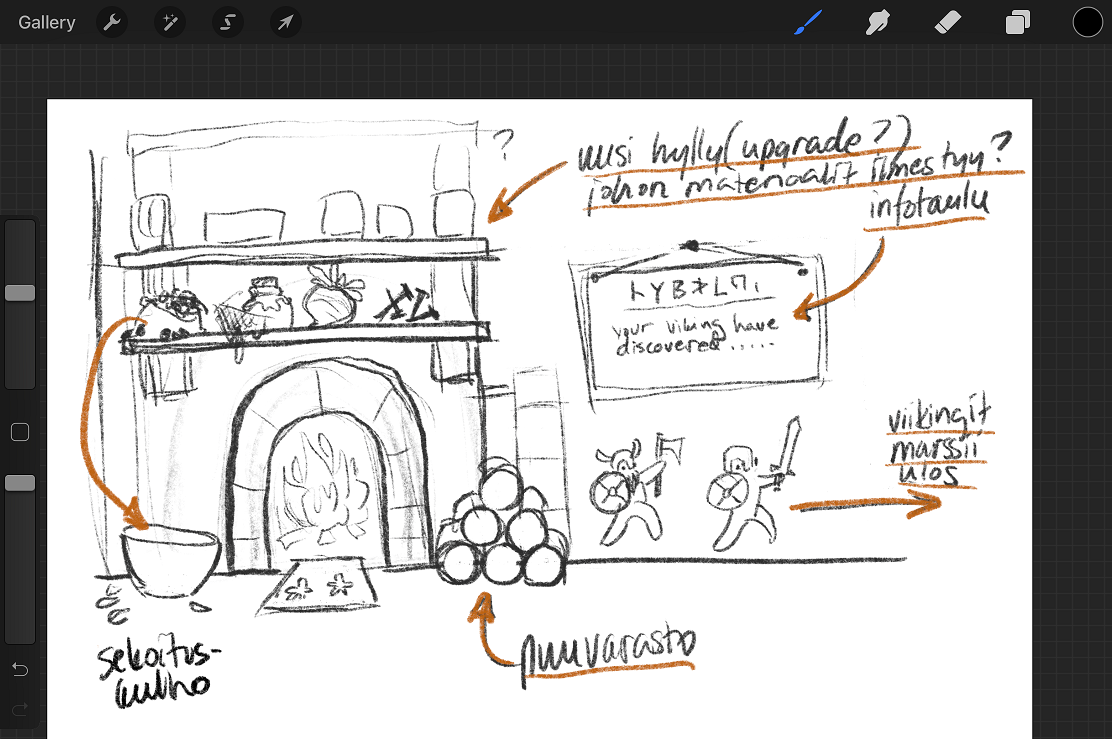 Gallery
?
uusi hylly (upgrade?)
johon materiaalit ilmestyy?
infotaulu
your viking have
discovered.....
XL
viikingit
marssii
ulos
sekoitus-
kulho
puuvarasto